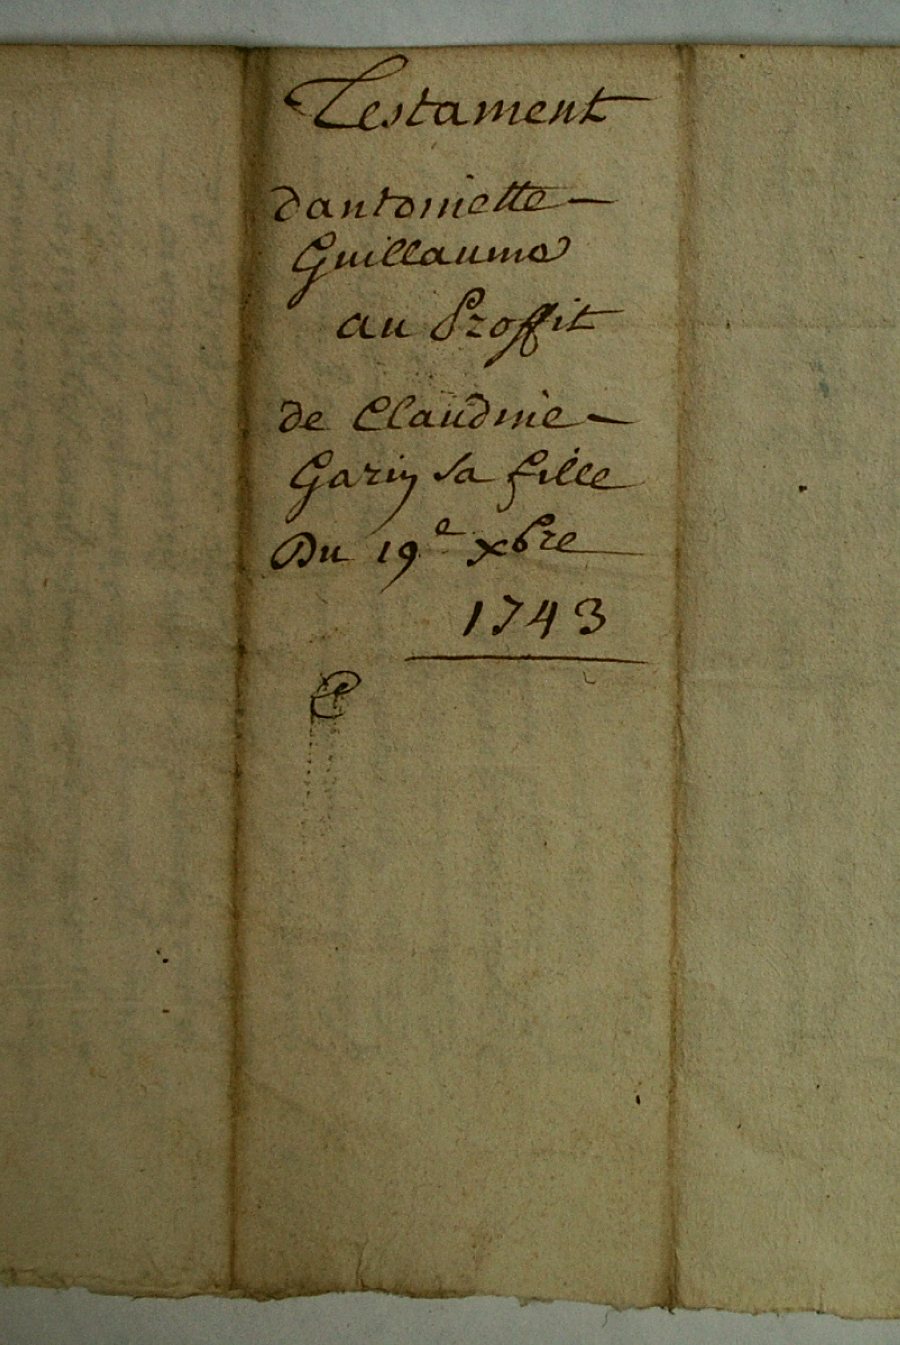 Testament
dantoniette
Guillaume
au Proffit
de Claudine
Garin sa fille
Du 19e xbre
1743